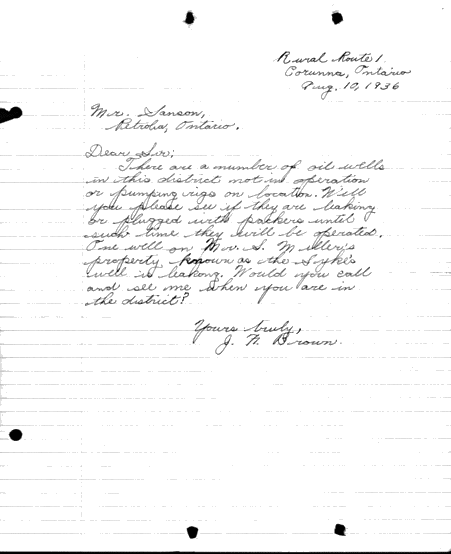 Rural Route 1
Corunna, Ontario
Aug. 10, 1936
Mr. Sanson,
Petrolia, Ontario.
Dear Sir;
There are a number of oil wells
in this district not in operation
or pumping rigs on location. Will
you please see if they are leaking
or plugged with packers until
such time they will be operated.
One well on Mr. S. Miller's
property known as the Sykes
well is leaking. Would you call
and see me when you are in
the district?
Yours truly,
J. N. Brown.